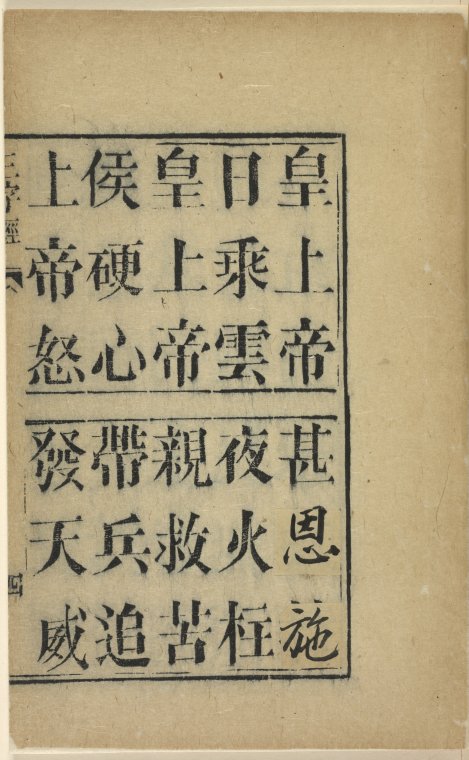 皇上帝 甚恩施
日乘雲 夜火柱
皇上帝 親救苦
侯硬心 帶兵追
上帝怒 發天威
三字經
四